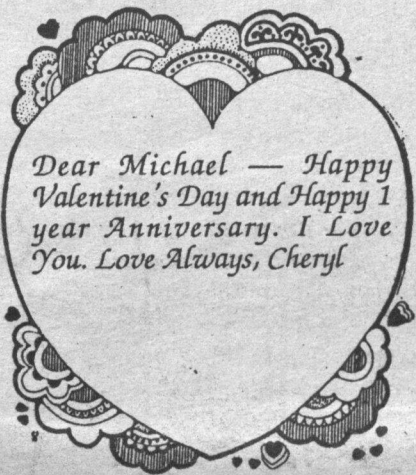 Dear Michael — Happy
Valentine's Day and Happy 1
year Anniversary. I Love
You. Love Always, Cheryl